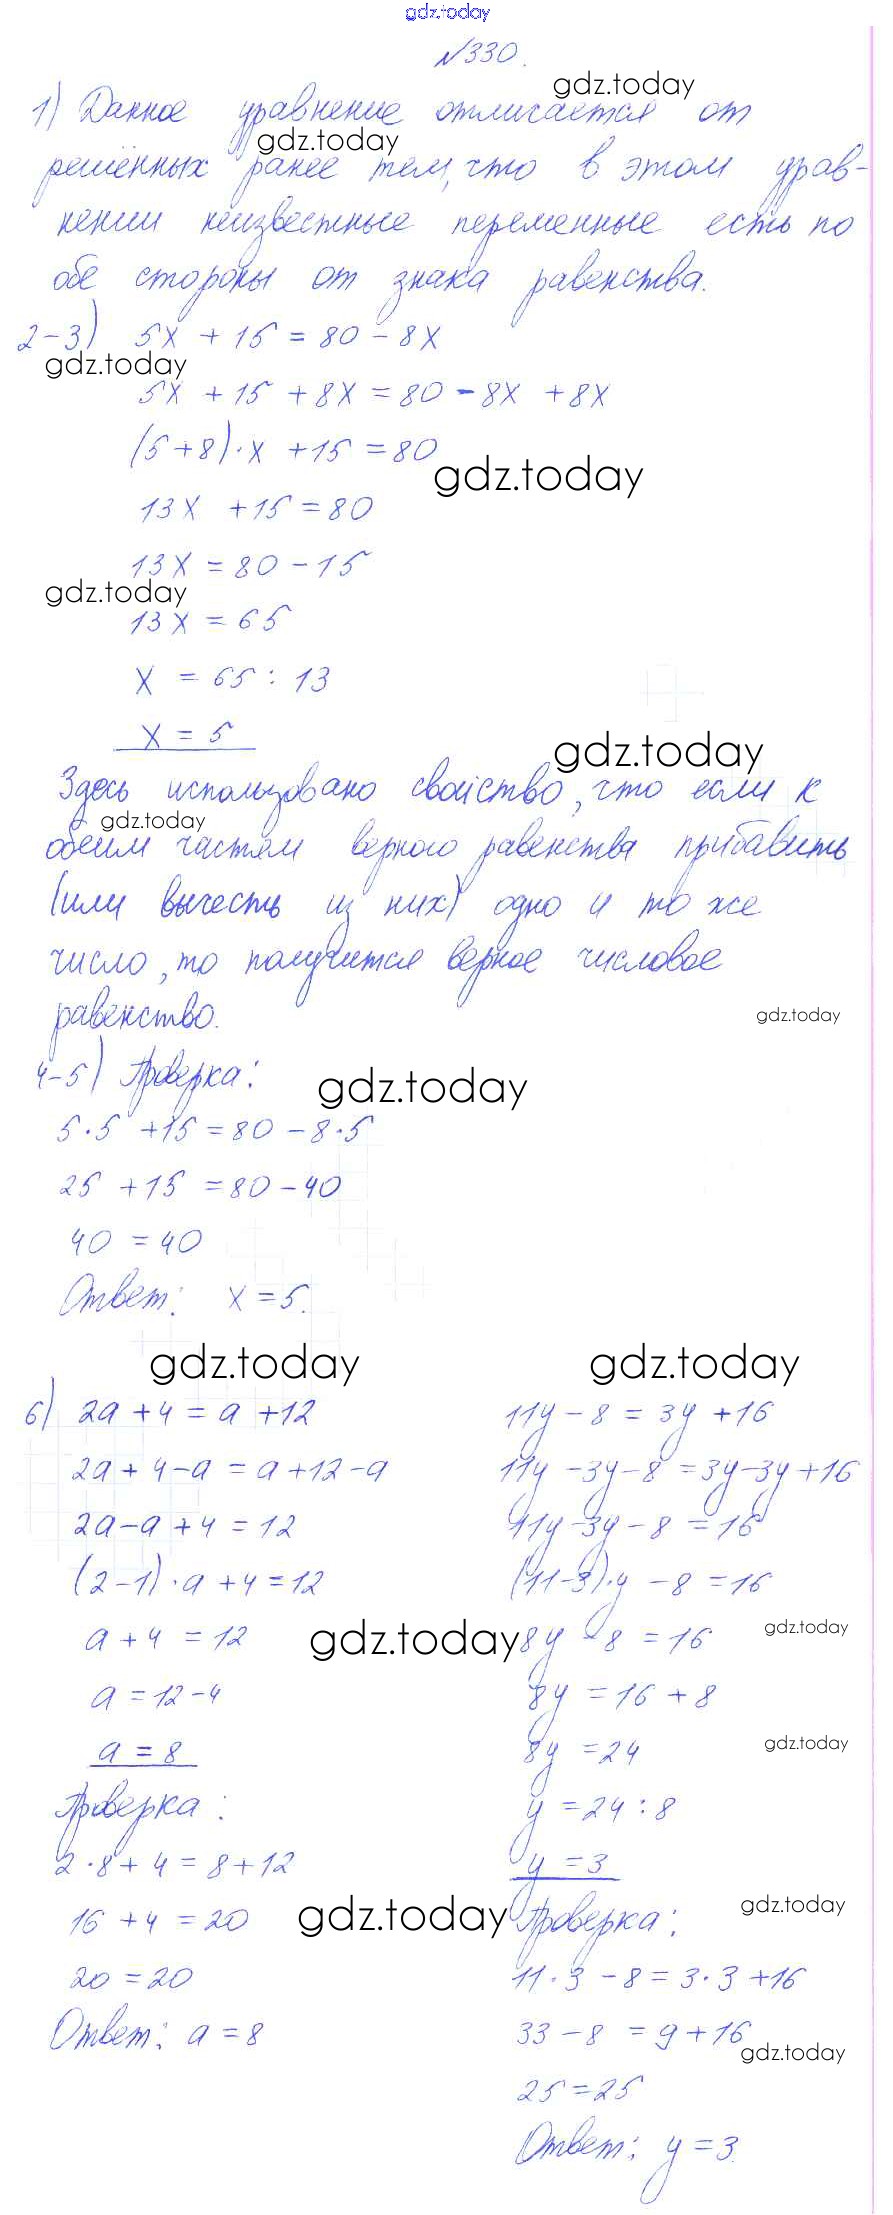 gdz.today
№330.
gdz.today
1) Данное уравнение отличается от
gdz.today
решённых ранее тем, что в этом урав-
нении неизвестные переменные есть по
обе стороны от знака равенства.
2-3) 5x + 15 = 80 - 8x
gdz.today
5x + 15 + 8x = 80 - 8x + 8x
(5+8)·x + 15 = 80
gdz.today
13x + 15 = 80
13x = 80 - 15
gdz.today
13x = 65
x = 65 : 13
x = 5
gdz.today
Здесь использовано свойство, что если к
gdz.today
обеим частям верного равенства прибавить
(или вычесть из них) одно и то же
число, то получится верное числовое
равенство.
gdz.today
4-5) Проверка:
gdz.today
5·5 + 15 = 80 - 8·5
25 + 15 = 80 - 40
40 = 40
Ответ: x = 5.
gdz.today
gdz.today
6) 2a + 4 = a + 12
2a + 4 - a = a + 12 - a
2a - a + 4 = 12
(2-1)·a + 4 = 12
a + 4 = 12
gdz.today
a = 12 - 4
a = 8
Проверка:
2·8 + 4 = 8 + 12
16 + 4 = 20
gdz.today
20 = 20
Ответ: a = 8
11y - 8 = 3y + 16
11y - 3y - 8 = 3y - 3y + 16
11y - 3y - 8 = 16
(11-3)·y - 8 = 16
8y - 8 = 16
gdz.today
8y = 16 + 8
8y = 24
gdz.today
y = 24 : 8
y = 3
Проверка:
gdz.today
11·3 - 8 = 3·3 + 16
33 - 8 = 9 + 16
gdz.today
25 = 25
Ответ: y = 3.